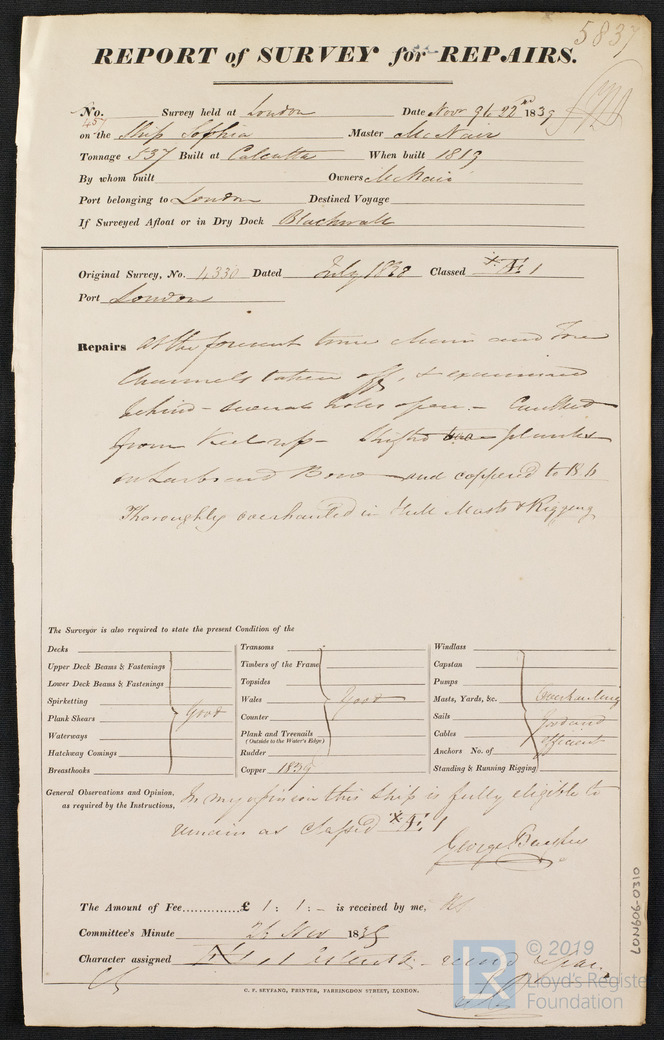 5837
REPORT of SURVEY for REPAIRS.
No. 457 Survey held at London Date Novr 9th 22nd 1839
on the Ship Sophia Master McNair
Tonnage 537 Built at Calcutta When built 1819
By whom built Owners McNair
Port belonging to London Destined Voyage
If Surveyed Afloat or in Dry Dock Blackwall
Original Survey, No. 4330 Dated July 1838 Classed Æ 1
Port London
Repairs at the present time Main and Fore
Channels taken off, & examined
behind - several holes open - Caulked
from Keel up - Shifted two planks
on Larboard Bow and coppered to 18 ft
Thoroughly overhauled in Hull Masts & Rigging
The Surveyor is also required to state the present Condition of the
Decks
Upper Deck Beams & Fastenings
Lower Deck Beams & Fastenings
Spirketting
Plank Shears
Waterways
Hatchway Comings
Breasthooks
Good
Transoms
Timbers of the Frame
Topsides
Wales
Counter
Plank and Treenails
(Outside to the Water's Edge)
Rudder
Good
Copper 1839
Windlass
Capstan
Pumps
Masts, Yards, &c.
Sails
Cables
Anchors No. of
Overhauling
Good and
efficient
Standing & Running Rigging
General Observations and Opinion,
as required by the Instructions,
In my opinion this Ship is fully eligible to
remain as classed Æ 1
George Bayley
The Amount of Fee..............£ 1 : 1 : - is received by me,
Committee's Minute 26 Nov 1839
Character assigned
C. F. SEYFANG, PRINTER, FARRINGDON STREET, LONDON.
LON606-0310
LR
© 2019
Lloyd's Register
Foundation